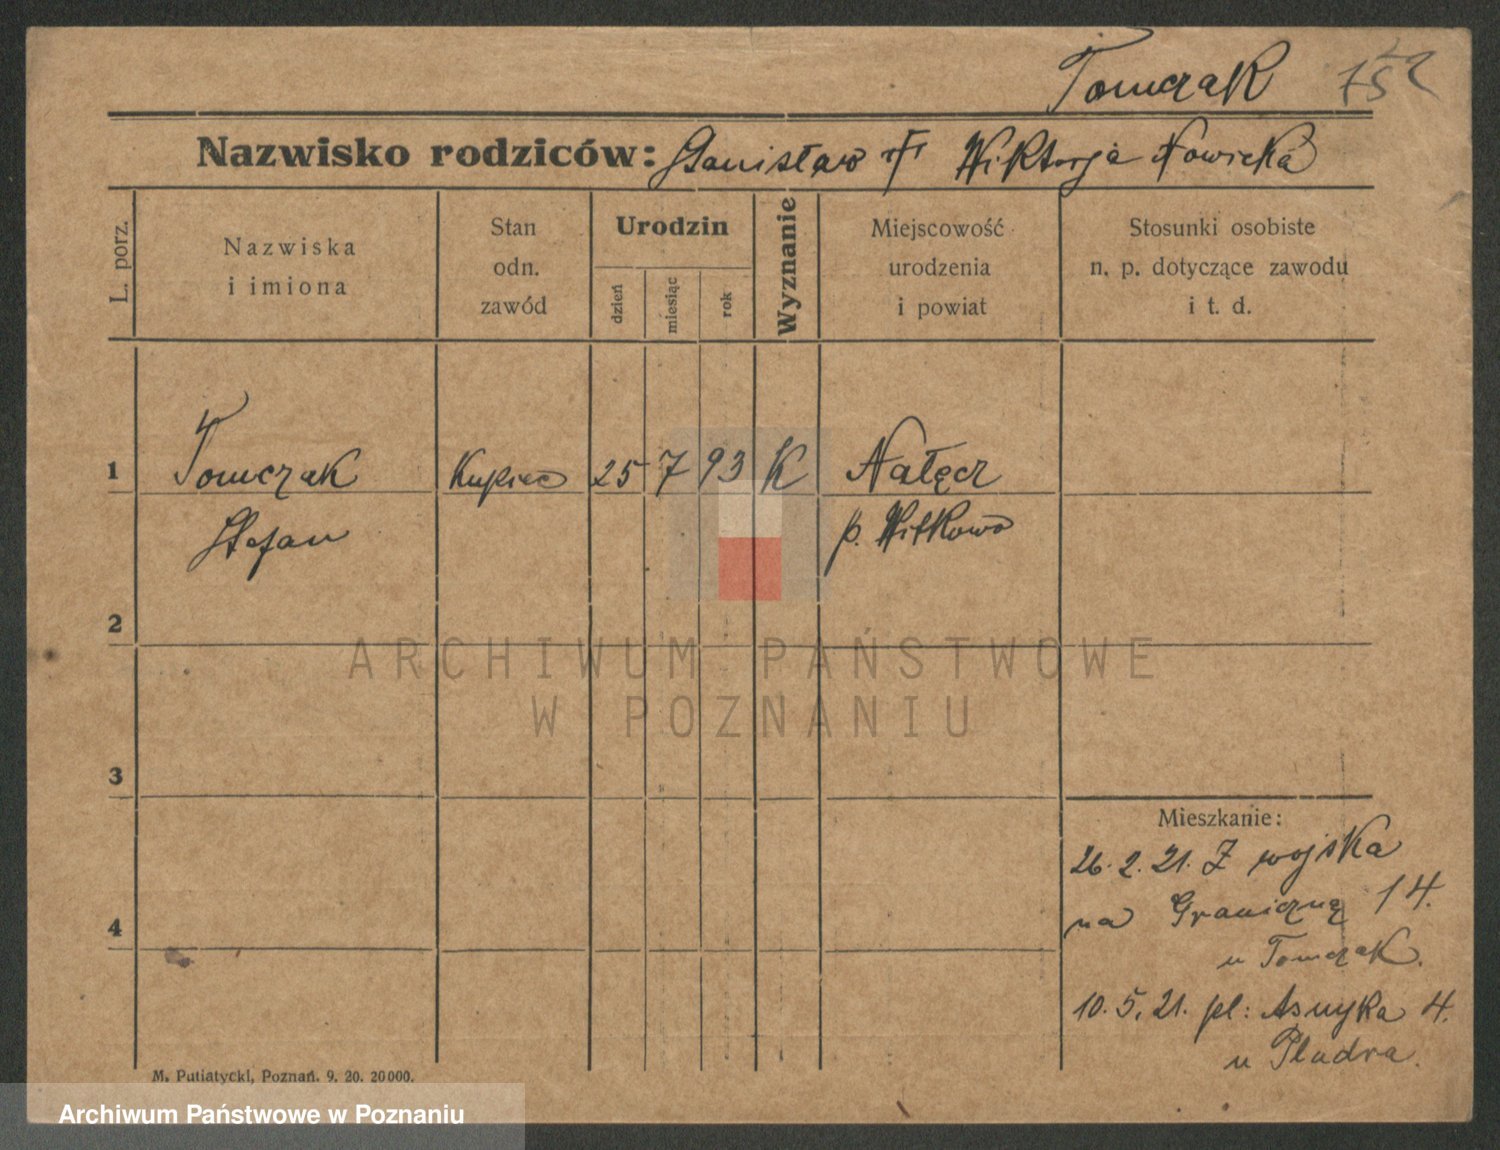 Tomczak 752
Nazwisko rodziców: Stanisław † Wiktorja Nowicka
L. porz.
Nazwiska
i imiona
Stan
odn.
zawód
Urodzin
dzień
miesiąc
rok
Wyznanie
Miejscowość
urodzenia
i powiat
Stosunki osobiste
n. p. dotyczące zawodu
i t. d.
1 Tomczak Kupiec 25 7 93 K Nałęcz
Stefan p. Witkowo
2
ARCHIWUM PAŃSTWOWE
W POZNANIU
3
Mieszkanie:
26. 2. 21. Z wojska
na Graniczną 14.
4
u Tomczak.
10. 5. 21. pl: Asnyka 4.
u Pludra.
M. Putiatycki, Poznań. 9. 20. 20000.
Archiwum Państwowe w Poznaniu